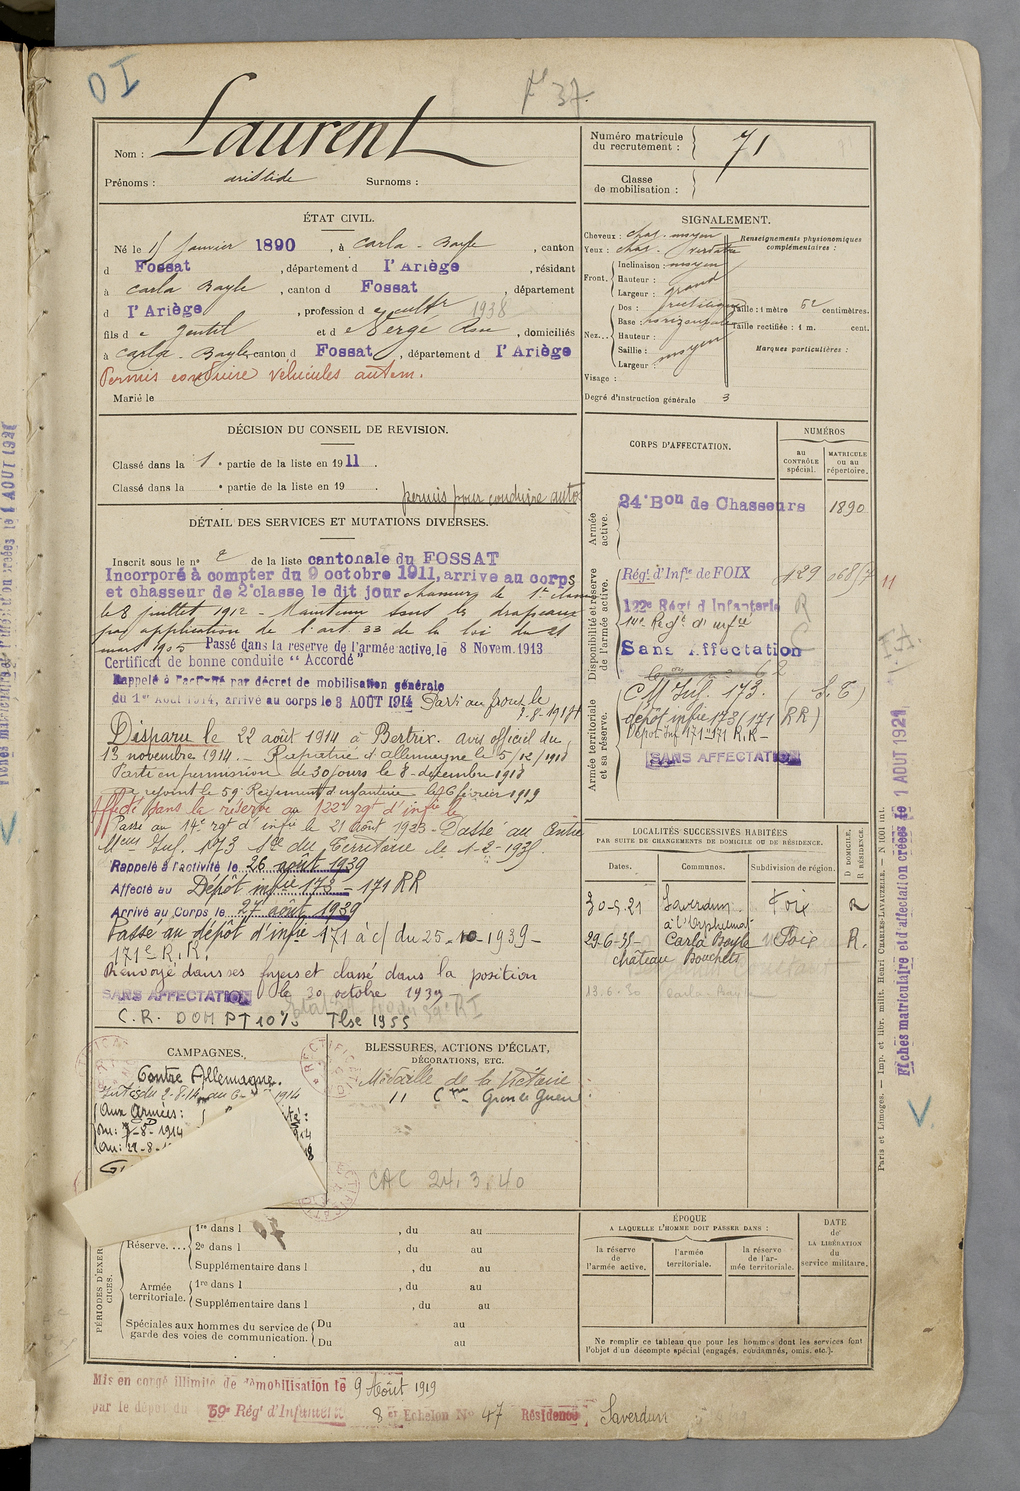 D I
N° 37.
Laurent
Nom :
Prénoms : aristide Surnoms :
Numéro matricule du recrutement : 71
Classe de mobilisation :
ÉTAT CIVIL.
Né le janvier 1890, à Carla-Bayle, canton
d Fossat, département d l'Ariège, résidant
à Carla Bayle, canton d Fossat, département
d l'Ariège, profession d cultr 1938
fils de Gentil et de Rose, domiciliés
à Carla-Bayle canton d Fossat, département d l'Ariège
Permis conduire véhicules autom.
Marié le
SIGNALEMENT.
Cheveux : chat. moyen
Yeux : chat. verdâtre
Renseignements physionomiques complémentaires :
Front. Inclinaison : moyen
Hauteur : grand
Largeur : grand
Nez... Dos : rectiligne
Base : horizontale
Hauteur :
Saillie : moyen
Largeur :
Taille : 1 mètre 52 centimètres.
Taille rectifiée : 1 m. cent.
Marques particulières :
Visage :
Degré d'instruction générale 3
DÉCISION DU CONSEIL DE REVISION.
Classé dans la 1e partie de la liste en 1911.
Classé dans la e partie de la liste en 19
permis pour conduire auto
DÉTAIL DES SERVICES ET MUTATIONS DIVERSES.
Inscrit sous le n° 2 de la liste cantonale du FOSSAT
Incorporé à compter du 9 octobre 1911, arrive au corps
et chasseur de 2e classe le dit jour chasseur de 1e classe
le 8 juillet 1912 - Maintenu sous les drapeaux
par application de l'art 33 de la loi du 21
mars 1905 Passé dans la réserve de l'armée active, le 8 Novem. 1913
Certificat de bonne conduite "Accordé"
Rappelé à l'activité par décret de mobilisation générale
du 1er Août 1914, arrive au corps le 3 AOUT 1914 Parti au front le
Disparu le 22 août 1914 à Bertrix. avis officiel du
13 novembre 1914. - Rapatrié d'Allemagne le 5/12/1918
Parti en permission de 30 jours le 8 décembre 1918
rejoint le 59e Régiment d'infanterie le 6 février 1919
Affecté dans la réserve au 122e rgt d'infie le
Passé au 14e rgt d'infie le 21 août 1923 - Passé au Centre
Mteur Inf. 173 Son du Territoire le 1-2-1935
Rappelé à l'activité le 26 août 1939
Affecté au Dépôt infie 173 - 171 RR
Arrivé au Corps le 27 août 1939
Passé au dépôt d'infie 171 à c/ du 25-10-1939 -
171e R.R.
Renvoyé dans ses foyers et classé dans la position
SANS AFFECTATION le 30 octobre 1939
C.R. DOM PT 1075 Tlse 1955
CORPS D'AFFECTATION.
NUMÉROS
au CONTRÔLE spécial.
MATRICULE ou au répertoire.
Armée active.
24e Bon de Chasseurs 1890
Disponibilité et réserve de l'armée active.
Régt d'Infie de FOIX 129 068/7 11
122e Régt d'Infanterie R
14e Regt d'infie
Sans Affectation
Armée territoriale et sa réserve.
C M Inf. 173. (S. T)
dépôt infie 173 (171 RR)
Dépôt inf 171-171 R.R-
SANS AFFECTATION
LOCALITÉS SUCCESSIVES HABITÉES
PAR SUITE DE CHANGEMENTS DE DOMICILE OU DE RÉSIDENCE.
D DOMICILE, R RÉSIDENCE.
Dates. Communes. Subdivision de région.
30-5-21 Saverdun Foix R
à l'Orphelinat
29-6-35- Carla Bayle Foix R.
château Bouchets
13-6-30 Carla-Bayle
CAMPAGNES.
Contre Allemagne.
Aux Armées :
BLESSURES, ACTIONS D'ÉCLAT,
DÉCORATIONS, ETC.
Médaille de la Victoire
11 Cme Grande Guerre
CAC 24.3.40
PÉRIODES D'EXERCICES.
Réserve....
1re dans l , du au
2e dans l , du au
Supplémentaire dans l , du au
Armée territoriale.
1re dans l , du au
Supplémentaire dans l , du au
Spéciales aux hommes du service de garde des voies de communication.
Du au
Du au
ÉPOQUE
A LAQUELLE L'HOMME DOIT PASSER DANS :
la réserve de l'armée active.
l'armée territoriale.
la réserve de l'armée territoriale.
DATE de LA LIBÉRATION du service militaire.
Ne remplir ce tableau que pour les hommes dont les services font
l'objet d'un décompte spécial (engagés, condamnés, omis, etc.).
Mis en congé illimité de démobilisation le 9 Août 1919
par le dépôt du 59e Régt d'Infanterie 8e Echelon No 47 Résidence Saverdun
Paris et Limoges. — Imp. et libr. milit. Henri CHARLES-LAVAUZELLE. — N 1001 int.
Fiches matriculaire et d'affectation créées le 1 AOUT 1921